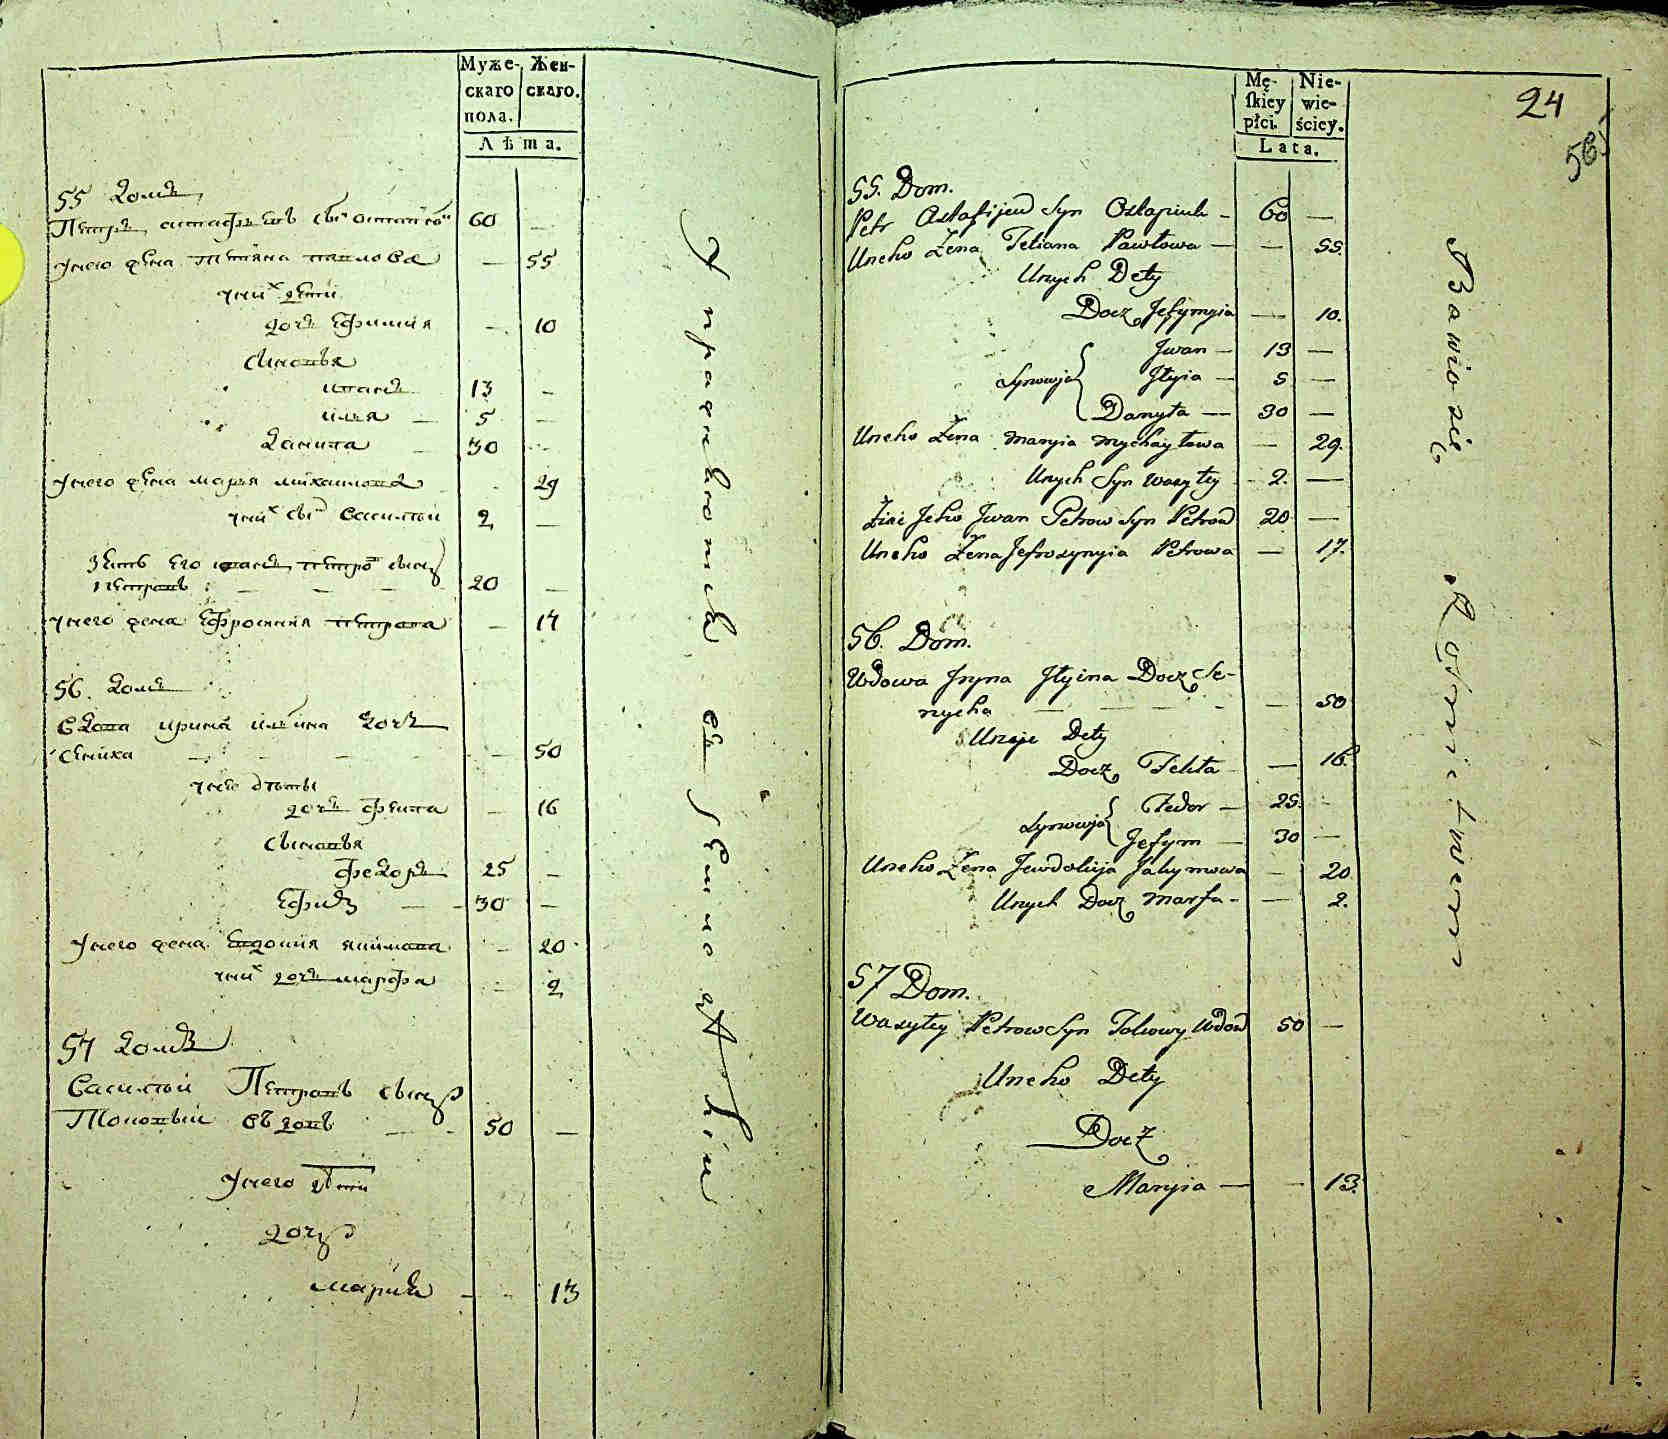 Муже-
скаго
пола.
Жен-
скаго.
Лѣта.
55 домъ
Петръ астафьевъ сынъ
60 —
унего жена татiяна павлова — 55
уних дети
дочь Ефимия — 10
сыновья
иванъ 13 —
илья — 5 —
данила 30 —
унего жена марья михаилова 29
уних сын василей 2 —
зять его иванъ петров сынъ
петровъ 20 —
унего жена Ефросиния петрова — 17
56. домъ
вдова ирина ильина дочь
сениха — 50
унее дѣти
дочь фекла — 16
сыновья
федоръ 25 —
Ефимъ — 30 —
унего жена Евдокия якимова — 20
уних дочь марфа — 2
57 домъ
Василей Петровъ сынъ
Токовый вдовъ — 50 —
Унего дѣти
дочь
мария — 13
Упражняются въ
Mę-
ſkiey
płci.
Nie-
wie-
ściey.
Lata.
24
56
55. Dom.
Petr Ostafijew Syn Ostapiuk — 60 —
Uneho Żena Tetiana Pawłowa — — 55.
Unych Dety
Docz Jefymyia — 10.
Jwan — 13 —
Synowja Jłyia — 5 —
Danyła — 30 —
Uneho Żena Maryia Mychayłowa — 29.
Unych Syn Wasyley 2. —
Ziat Jeho Jwan Petrow Syn Petrow 20 —
Uneho Żena Jefrosynyia Petrowa — 17.
56. Dom.
Wdowa Jryna Jłyina Docz Se-
nycha — 50
Uneje Dety
Docz Tekla — 16.
Synowja Fedor — 25. —
Jefym — 30 —
Uneho Żena Jewdokija Jakymowa — 20
Unych Docz Marfa — — 2.
57 Dom.
Wasyley Petrow Syn Tokowy Wdow 50 —
Uneho Dety
Docz
Maryia — — 13.
Bawio się Rolnictwem